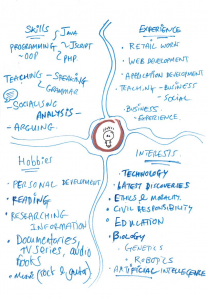 SKILLS
PROGRAMMING
JAVA
JSCRIPT
PHP
- OOP
TEACHING - SPEAKING
GRAMMAR
- SOCIALISING
ANALYSIS -
- ARGUING
EXPERIENCE
• RETAIL WORK
• WEB DEVELOPMENT
• APPLICATION DEVELOPMENT
• TEACHING - BUSINESS
- SOCIAL
- BUSINESS
EXPERIENCE
HOBBIES
• PERSONAL DEVELOPMENT
• READING
• RESEARCHING
INFORMATION
• Documentaries,
TV series, audio
books
• Music (rock & guitar)
INTERESTS
• TECHNOLOGY
• LATEST DISCOVERIES
• ETHICS & MORALITY
• CIVIL RESPONSIBILITY
• EDUCATION
• BIOLOGY
• GENETICS
• ROBOTICS
• ARTIFICIAL INTELLIGENCE